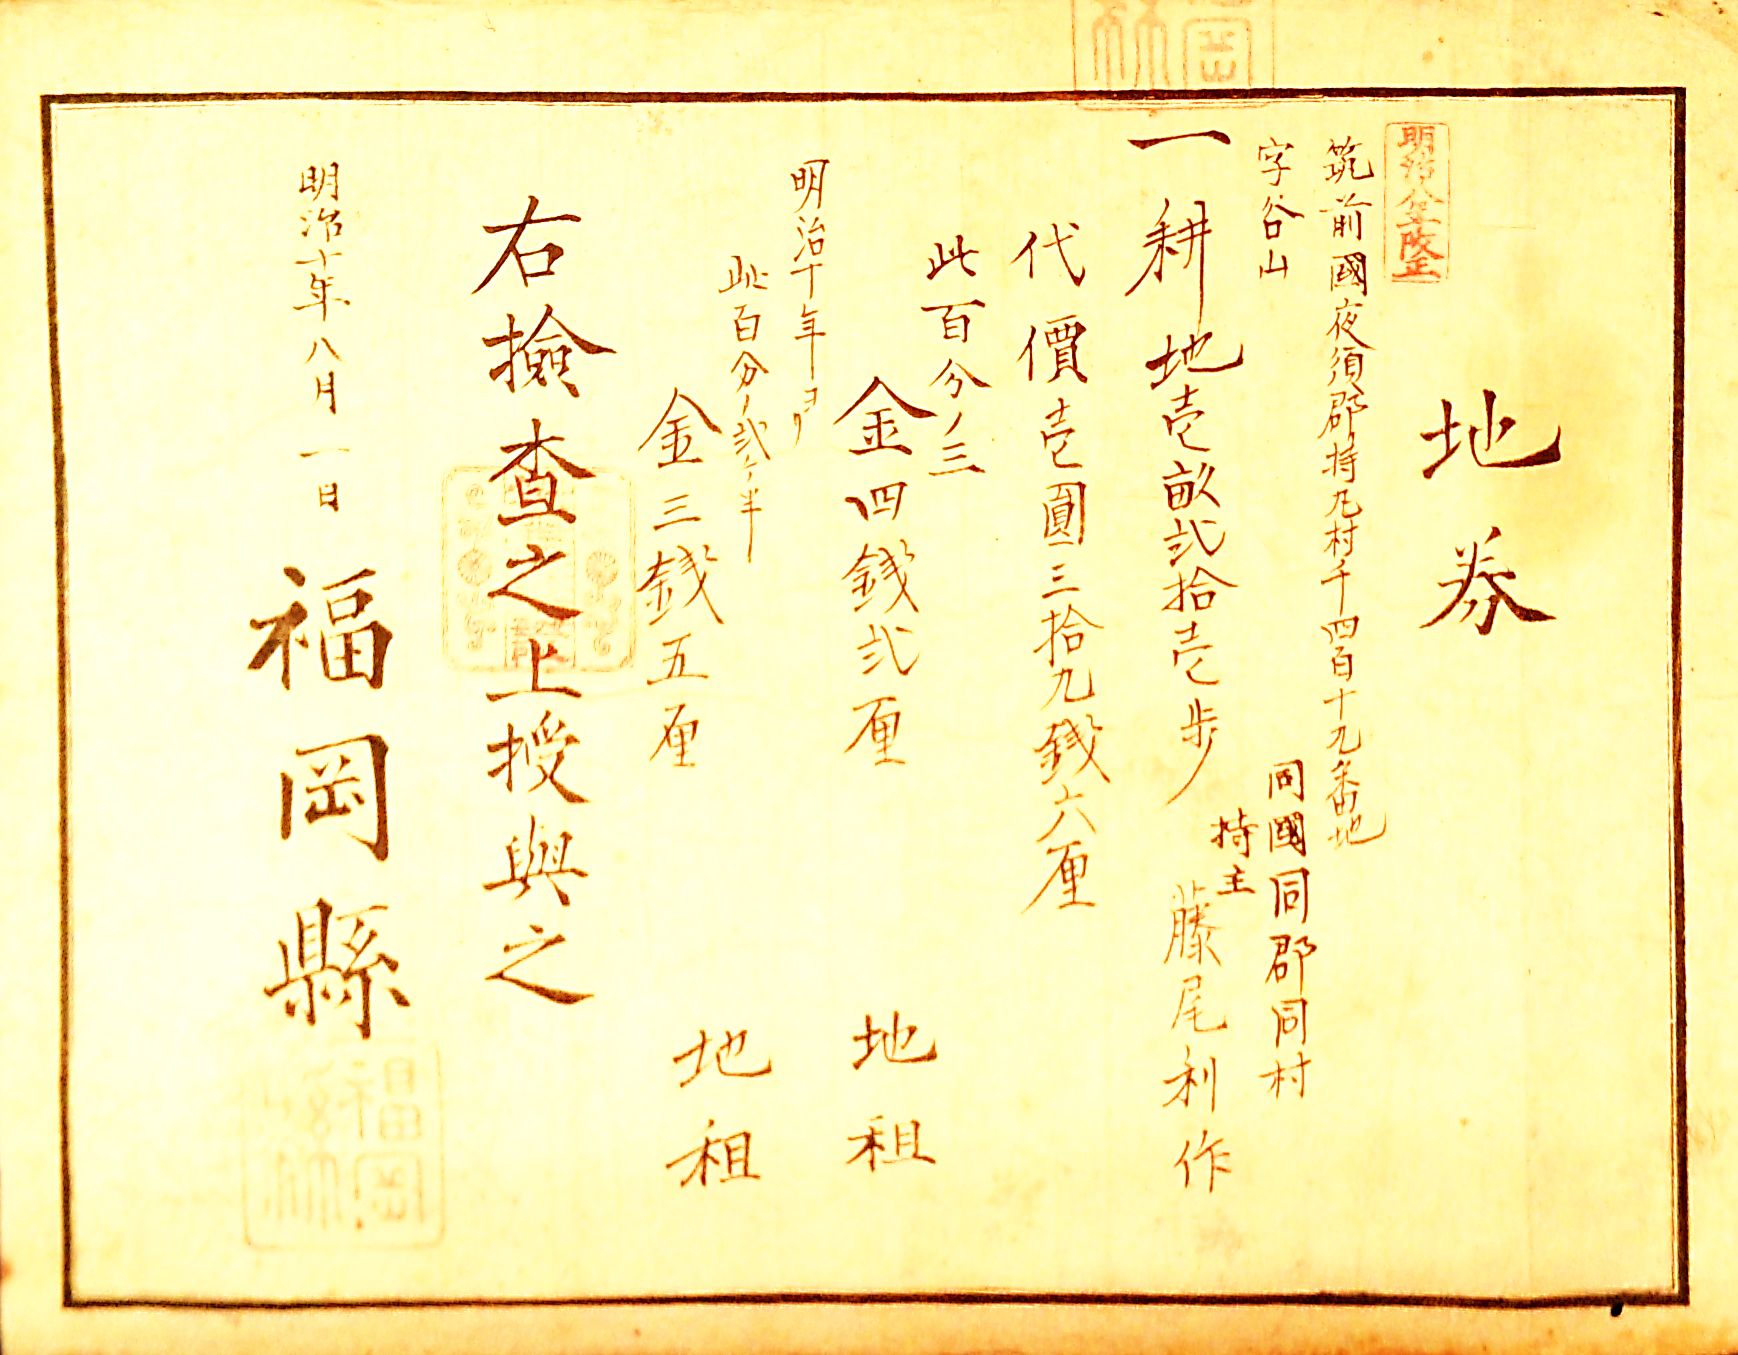 地券
明治八年改正
筑前國夜須郡持丸村千四百十九番地
字谷山
同國同郡同村
持主 藤尾利作
一耕地壱畝弐拾壱歩
代價壱圓三拾九錢六厘
此百分ノ三
金四錢弐厘 地租
明治十年ヨリ
此百分ノ弐ヶ半
金三錢五厘 地租
右撿査之上授與之
明治十年八月一日 福岡縣